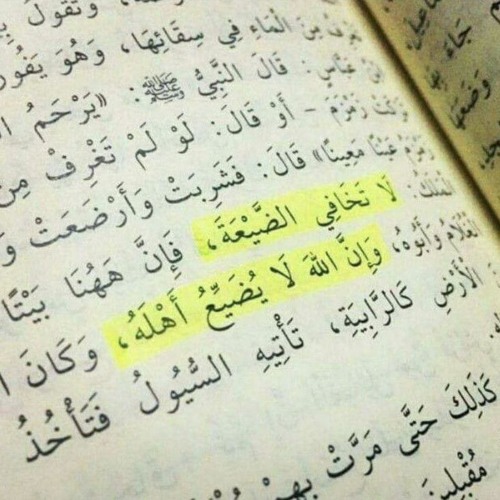 وَتَقُولُ
مِنَ الْمَاءِ فِي سِقَائِهَا، وَهُوَ يَفُورُ
عَبَّاسٍ: قَالَ النَّبِيُّ ﷺ: «يَرْحَمُ
تَرَكَتْ زَمْزَمَ – أَوْ قَالَ: لَوْ لَمْ تَغْرِفْ مِنَ
زَمْزَمُ عَيْنًا مَعِينًا» قَالَ: فَشَرِبَتْ وَأَرْضَعَتْ
الْمَلَكُ: لَا تَخَافِي الضَّيْعَةَ، فَإِنَّ هَهُنَا بَيْتًا
الْغُلَامُ وَأَبُوهُ، وَإِنَّ اللهَ لَا يُضَيِّعُ أَهْلَهُ، وَكَانَ
الْأَرْضِ كَالرَّابِيَةِ، تَأْتِيهِ السُّيُولُ فَتَأْخُذُ
كَذَلِكَ حَتَّى مَرَّتْ بِهِمْ